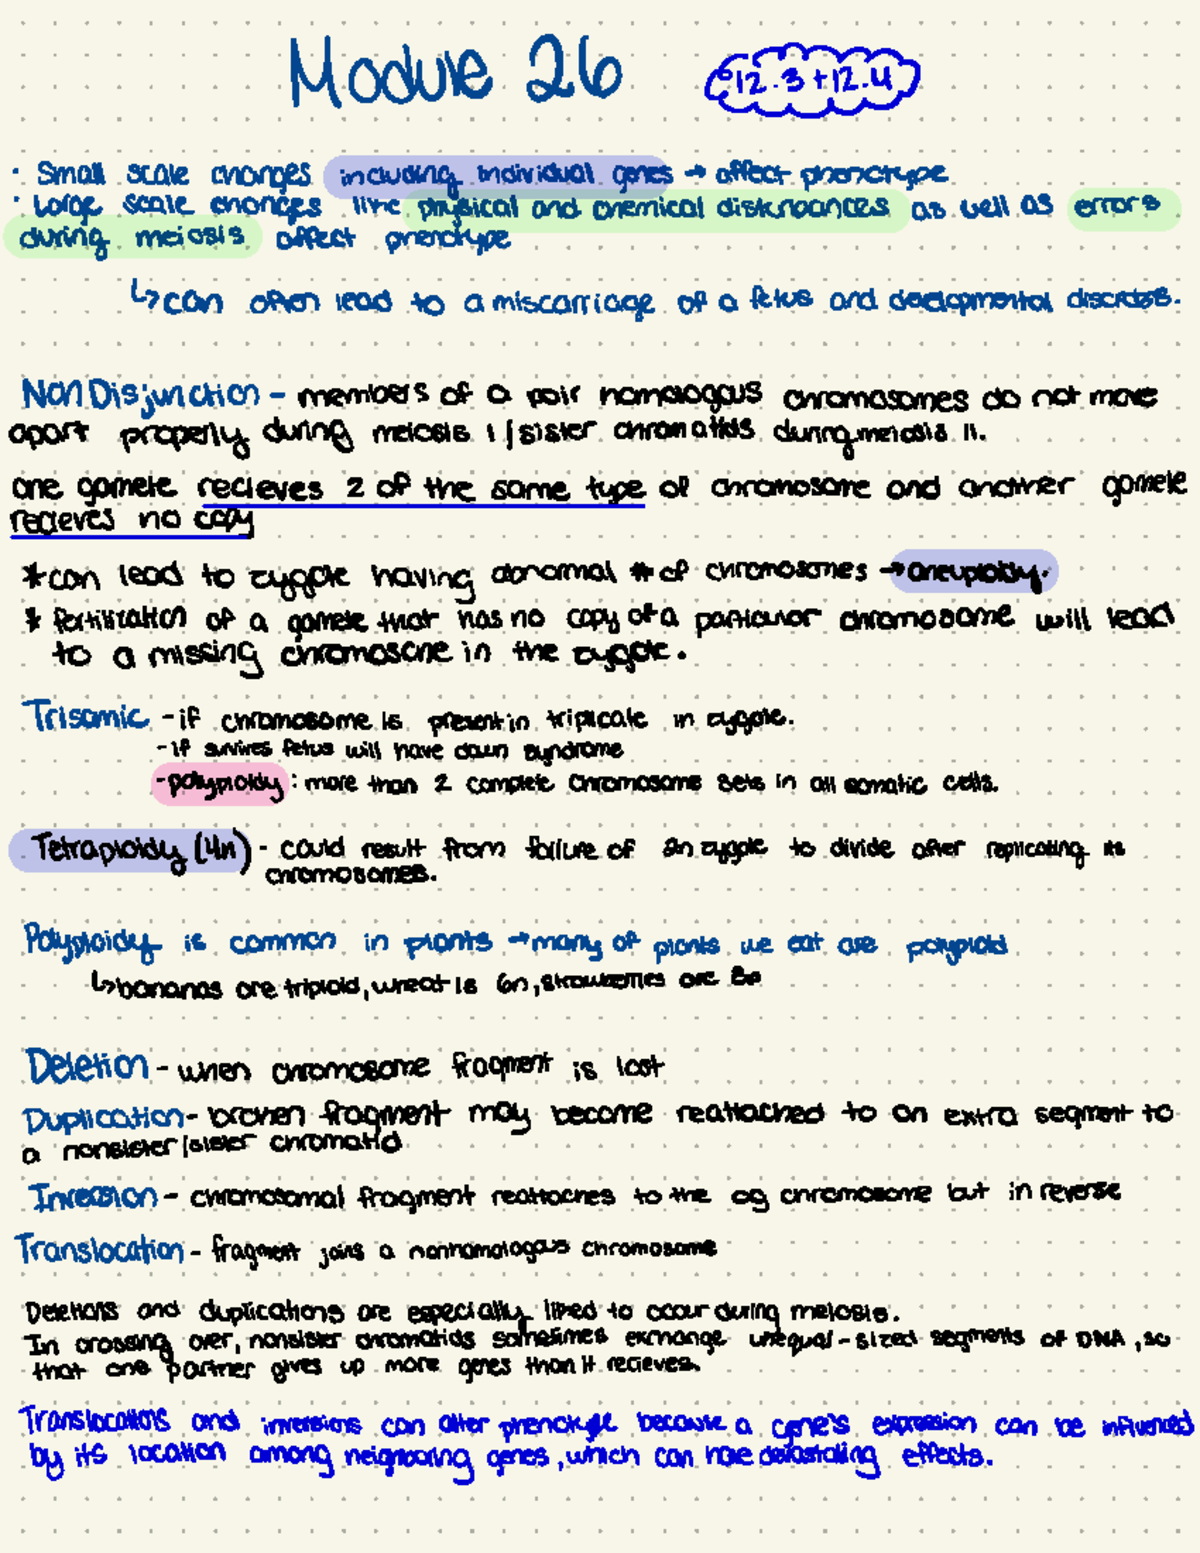 Module 26
12.3 + 12.4
· Small scale changes including individual genes → affect phenotype
· Large scale changes like physical and chemical disturbances as well as errors
during meiosis affect phenotype
↳ can often lead to a miscarriage of a fetus and developmental disorders.
NonDisjunction - members of a pair homologous chromosomes do not move
apart properly during meiosis 1 / sister chromatids during meiosis 11.
one gamete recieves 2 of the same type of chromosome and another gamete
recieves no copy
*can lead to zygote having abnormal # of chromosomes → aneuploidy.
* fertilization of a gamete that has no copy of a particular chromosome will lead
to a missing chromosome in the zygote.
Trisomic - if chromosome is present in triplicate in zygote.
- if survives fetus will have down syndrome
- polyploidy : more than 2 complete chromosome sets in all somatic cells.
Tetraploidy (4n) - could result from failure of an zygote to divide after replicating its
chromosomes.
Polyploidy is common in plants → many of plants we eat are polyploid
↳ bananas are triploid, wheat is 6n, strawberries are 8n
Deletion - when chromosome fragment is lost
Duplication - broken fragment may become reattached to an extra segment to
a nonsister/sister chromatid
Inversion - chromosomal fragment reattaches to the og chromosome but in reverse
Translocation - fragment joins a nonhomologous chromosome
Deletions and duplications are especially liked to occur during meiosis.
In crossing over, nonsister chromatids sometimes exchange unequal-sized segments of DNA, so
that one partner gives up more genes than it recieves.
Translocations and inversions can alter phenotype because a gene's expression can be influenced
by its location among neighboring genes, which can have devastating effects.